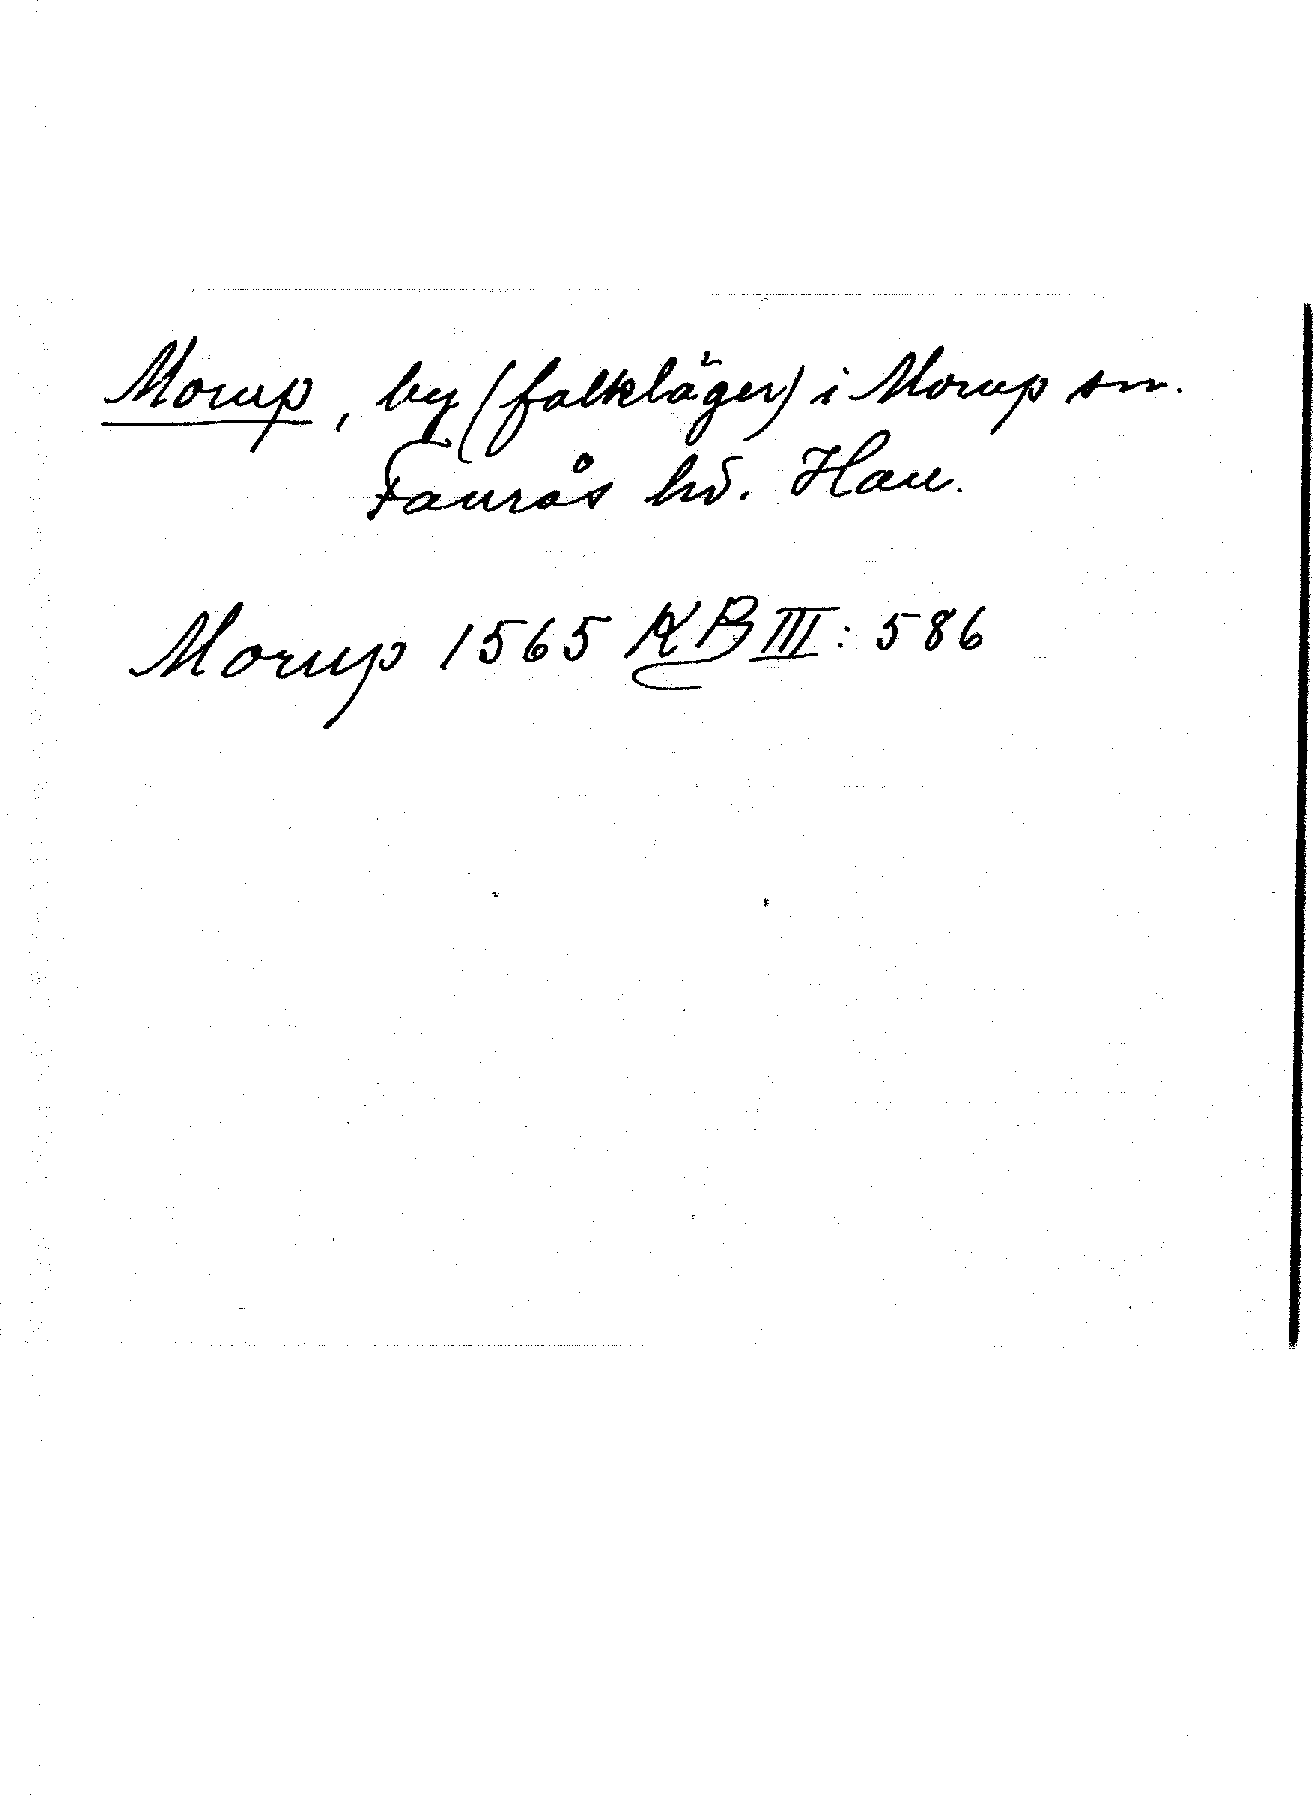 Morup, by (falkläger) i Morup sn.
Faurås hd. Hall.
Morup 1565 KB III: 586